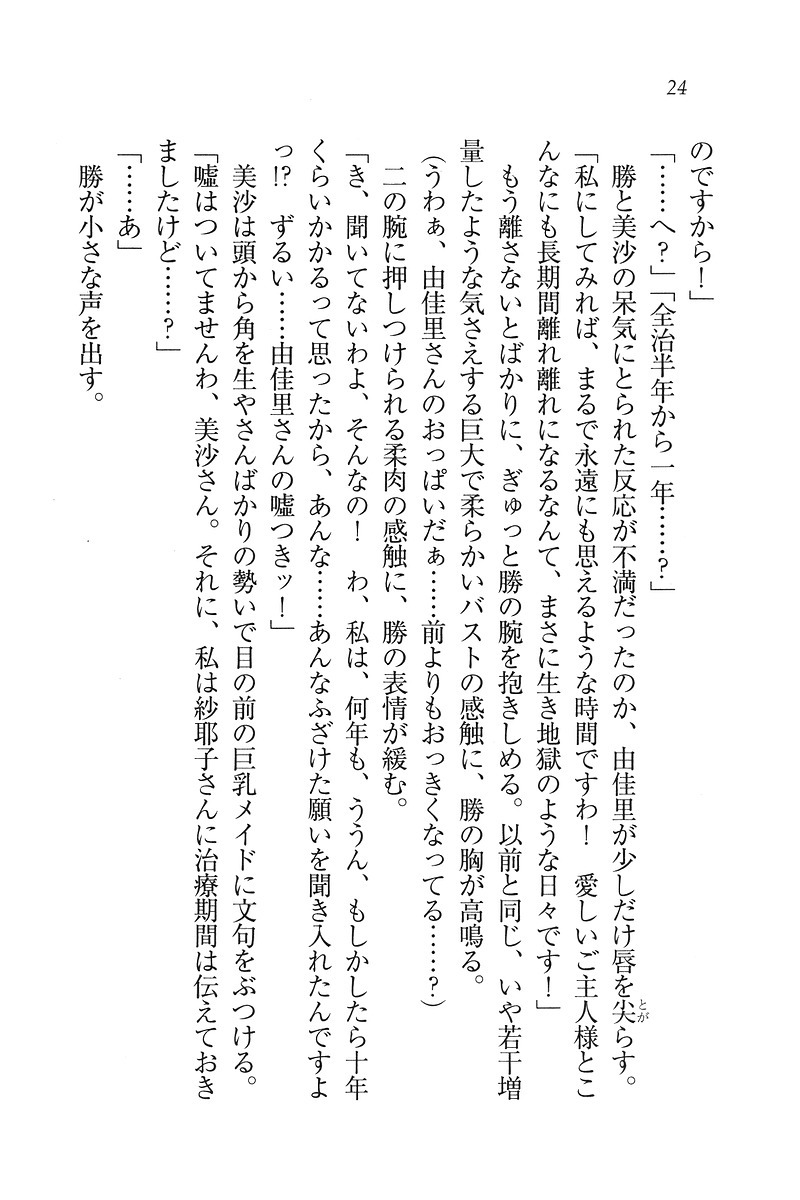 24
のですから！」
「……へ？」「全治半年から一年……？」
　勝と美沙の呆気にとられた反応が不満だったのか、由佳里が少しだけ唇を尖らす。
とが
「私にしてみれば、まるで永遠にも思えるような時間ですわ！　愛しいご主人様とこ
んなにも長期間離れ離れになるなんて、まさに生き地獄のような日々です！」
　もう離さないとばかりに、ぎゅっと勝の腕を抱きしめる。以前と同じ、いや若干増
量したような気さえする巨大で柔らかいバストの感触に、勝の胸が高鳴る。
（うわぁ、由佳里さんのおっぱいだぁ……前よりもおっきくなってる……？）
　二の腕に押しつけられる柔肉の感触に、勝の表情が緩む。
「き、聞いてないわよ、そんなの！　わ、私は、何年も、ううん、もしかしたら十年
くらいかかるって思ったから、あんな……あんなふざけた願いを聞き入れたんですよ
っ!?　ずるい……由佳里さんの嘘つきッ！」
　美沙は頭から角を生やさんばかりの勢いで目の前の巨乳メイドに文句をぶつける。
「嘘はついてませんわ、美沙さん。それに、私は紗耶子さんに治療期間は伝えておき
ましたけど……？」
「……あ」
　勝が小さな声を出す。